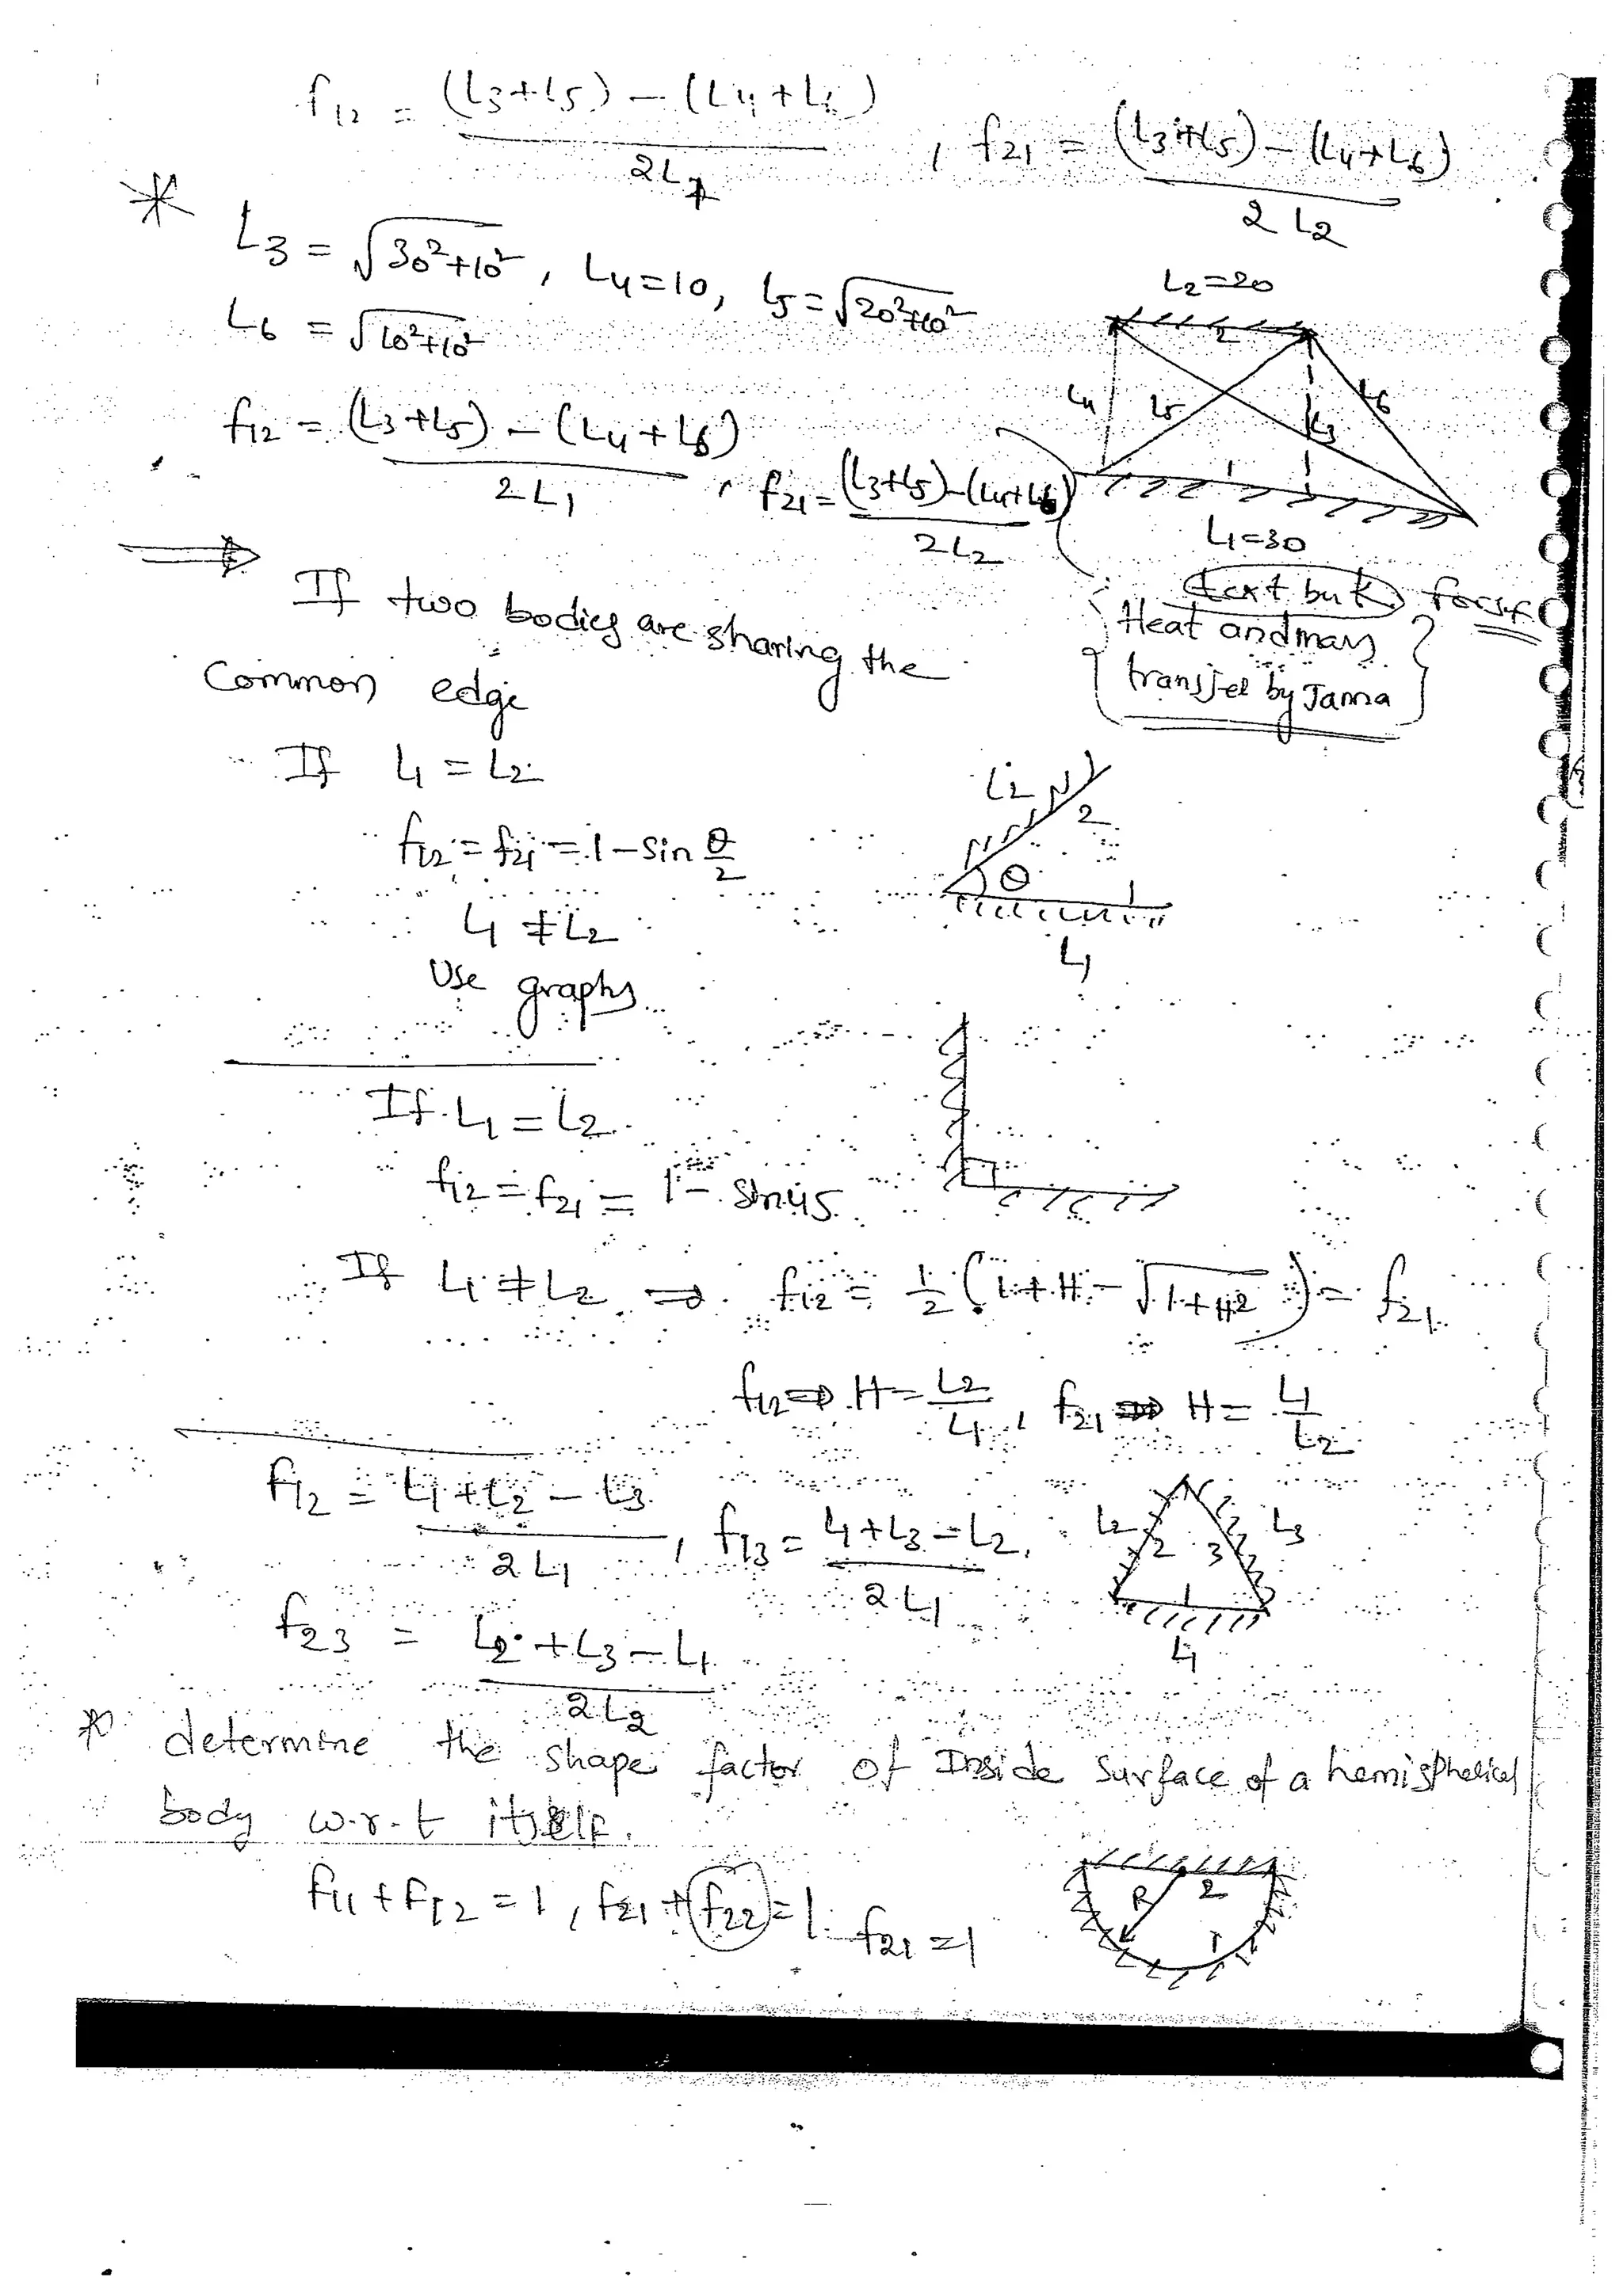 f12 = (L3+L5) - (L4+L6) / 2L1 , f21 = (L3+L5) - (L4+L6) / 2L2
* L3 = √30²+10² , L4=10, L5=√20²+10²
L6 = √10²+10²
L2=20
2
L4 L5 L3 L6
1
L1=30
f12 = (L3+L5) - (L4+L6) / 2L1 , f21 = (L3+L5)-(L4+L6) / 2L2
text buk for S.F
Heat and mass
transfer by Janna
⇒ If two bodies are sharing the
Common edge
If L1 = L2
f12 = f21 = 1 - sin θ/2
L1 ≠ L2
Use graphs
L2
2
θ
1
L1
If L1 = L2
f12 = f21 = 1 - sin45
If L1 ≠ L2 ⇒ f12 = 1/2 (1+H - √1+H²) = f21
f12 ⇒ H = L2/L1 , f21 ⇒ H = L1/L2
f12 = L1+L2-L3 / 2L1 , f13 = L1+L3-L2 / 2L1
f23 = L2+L3-L1 / 2L2
L2 2 3 L3
1
L1
* determine the shape factor of Inside surface of a hemispherical
body w.r.t itself.
f11 + f12 = 1 , f21 + f22 = 1 f21 = 1
R 2
1